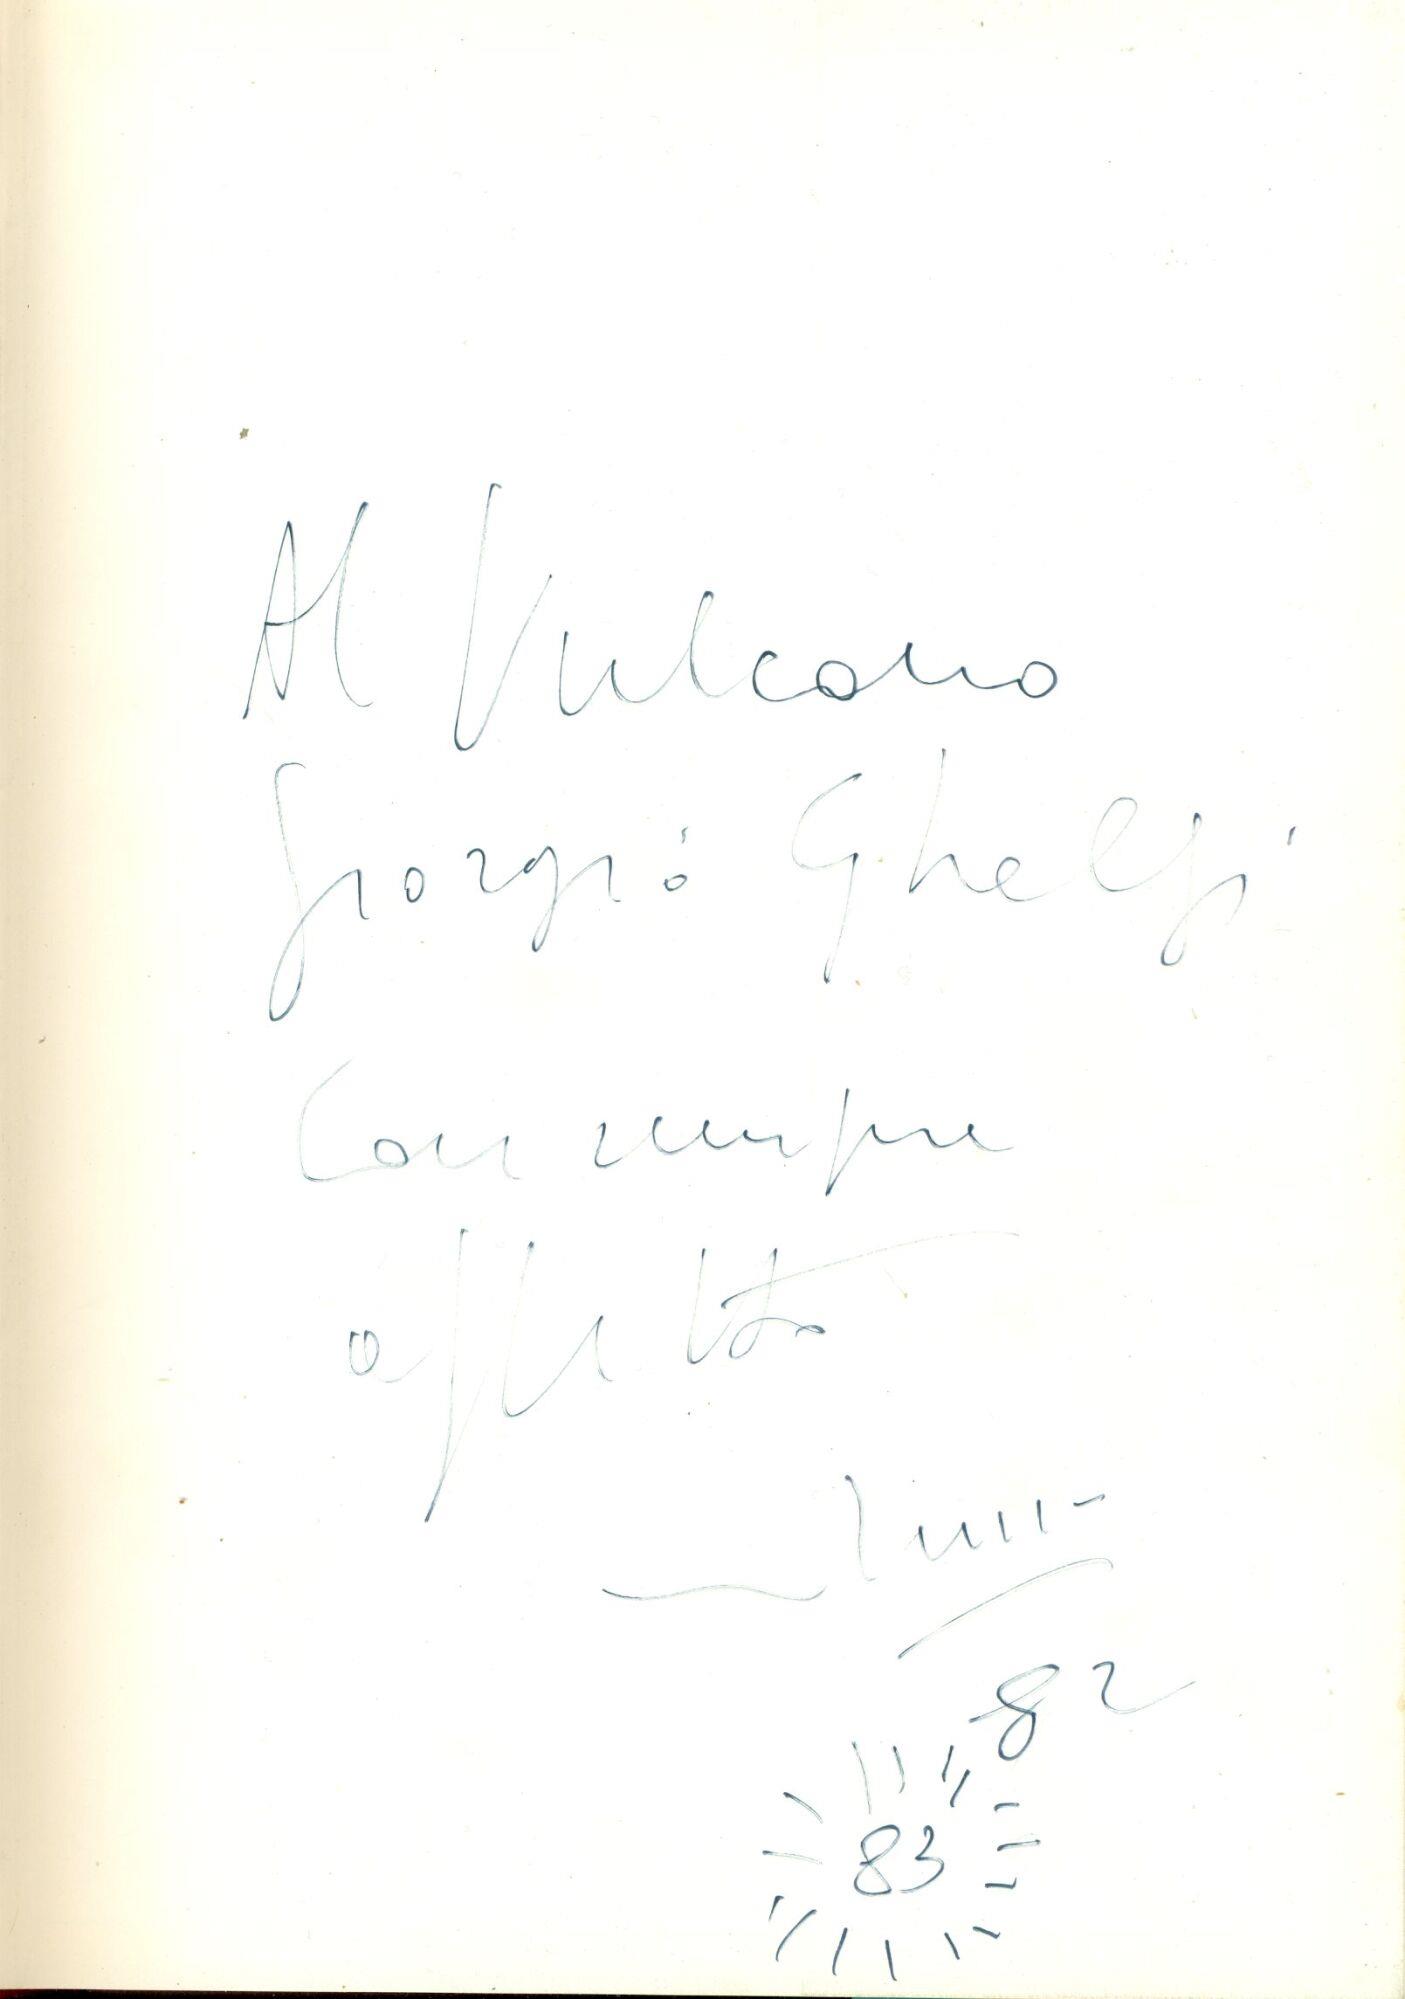 Al Vulcano
Giorgio Ghelfi
Con sempre
affetto
82
83